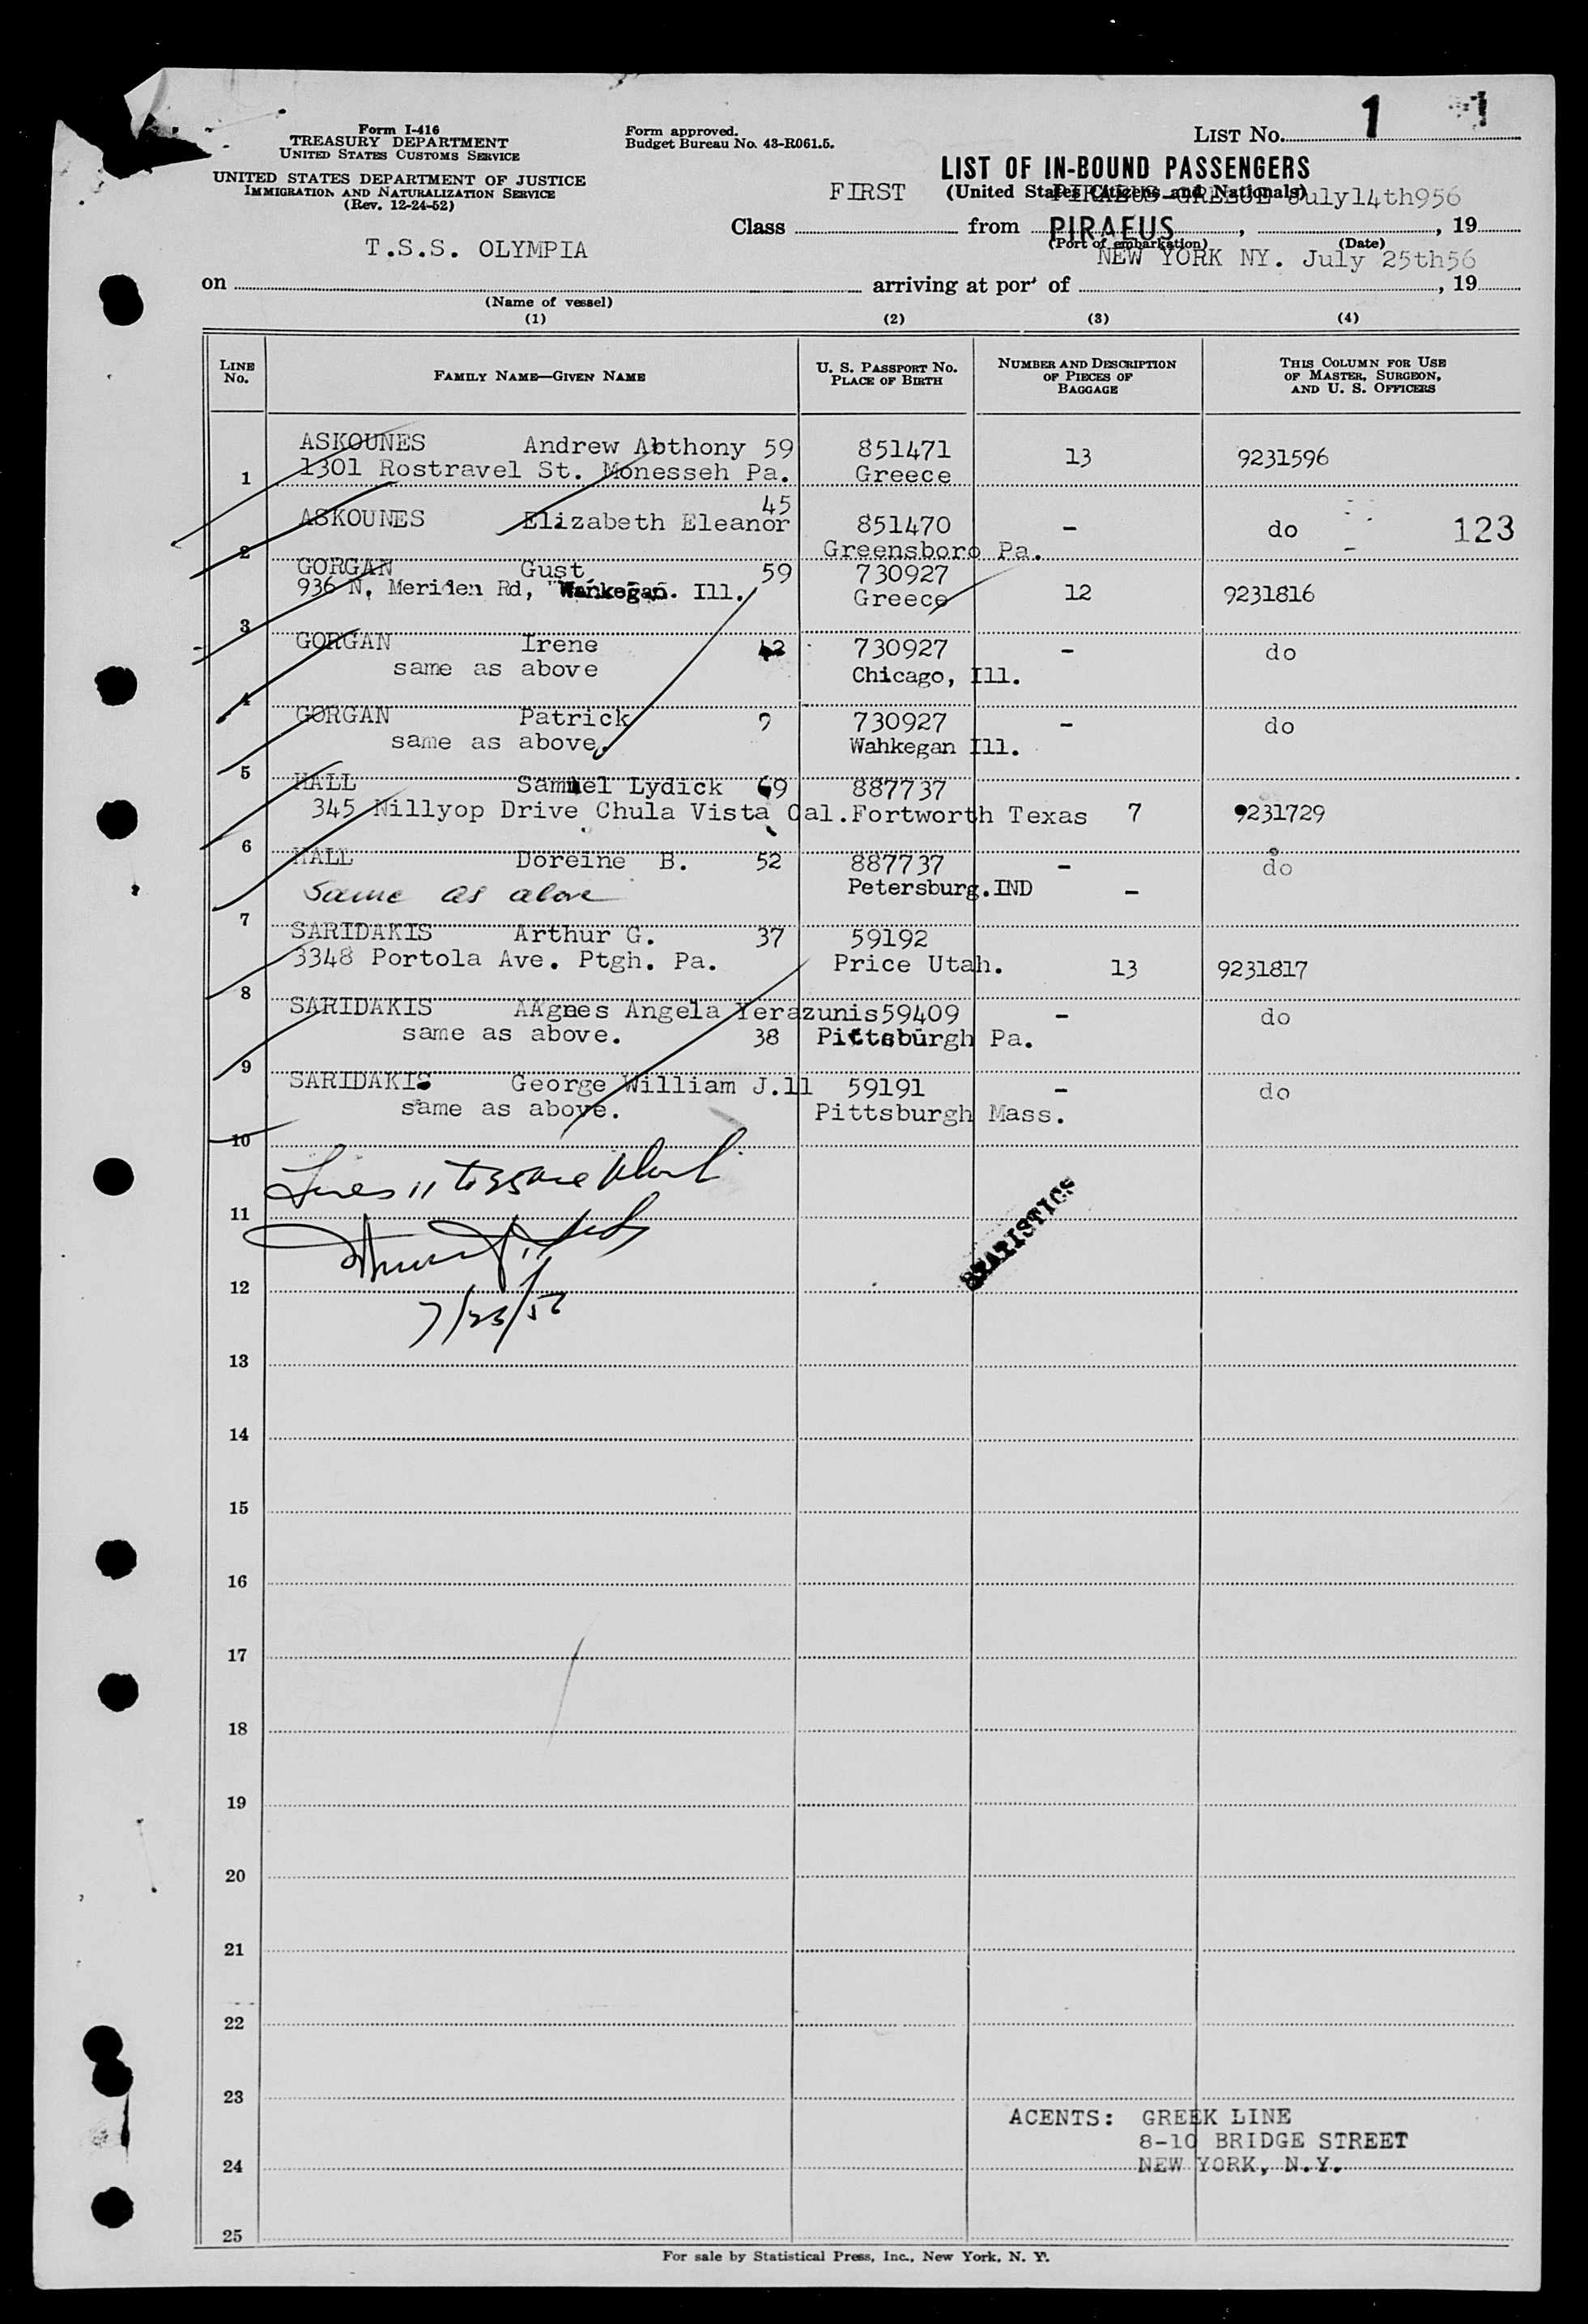 Form I-416
TREASURY DEPARTMENT
UNITED STATES CUSTOMS SERVICE
UNITED STATES DEPARTMENT OF JUSTICE
IMMIGRATION AND NATURALIZATION SERVICE
(Rev. 12-24-52)
Form approved.
Budget Bureau No. 43-R061.5.
LIST No. 1
LIST OF IN-BOUND PASSENGERS
(United States Citizens and Nationals)
PIRAEUS-GREECE July14th956
Class FIRST from PIRAEUS, , 19
(Port of embarkation) (Date)
on T.S.S. OLYMPIA arriving at port of NEW YORK NY. July 25th56, 19
(Name of vessel)
(1) (2) (3) (4)
LINE No. FAMILY NAME—GIVEN NAME U. S. PASSPORT NO. PLACE OF BIRTH NUMBER AND DESCRIPTION OF PIECES OF BAGGAGE THIS COLUMN FOR USE OF MASTER, SURGEON, AND U. S. OFFICERS
ASKOUNES Andrew Abthony 59 851471 13 9231596
1 1301 Rostravel St. Monesseh Pa. Greece
45
ASKOUNES Elizabeth Eleanor 851470 – do 123
2 Greensboro Pa.
GORGAN Gust 59 730927
936 N. Meriden Rd, Wankegan. Ill. Greece 12 9231816
3
GORGAN Irene 42 730927 – do
same as above Chicago, Ill.
4
GORGAN Patrick 730927 – do
same as above. Wahkegan Ill.
5
HALL Samuel Lydick 69 887737
345 Nillyop Drive Chula Vista Cal. Fortworth Texas 7 9231729
6
HALL Doreine B. 52 887737 – do
same as above Petersburg.IND –
7
SARIDAKIS Arthur G. 37 59192
3348 Portola Ave. Ptgh. Pa. Price Utah. 13 9231817
8
SARIDAKIS AAgnes Angela Yerazunis 59409 – do
same as above. 38 Pittsburgh Pa.
9
SARIDAKIS George William J.11 59191 – do
same as above. Pittsburgh Mass.
10
Lines 11 to 25 are blank
11
STATISTICS
12
7/25/56
13
14
15
16
17
18
19
20
21
22
23
ACENTS: GREEK LINE
8-10 BRIDGE STREET
24 NEW YORK, N.Y.
25
For sale by Statistical Press, Inc., New York, N. Y.